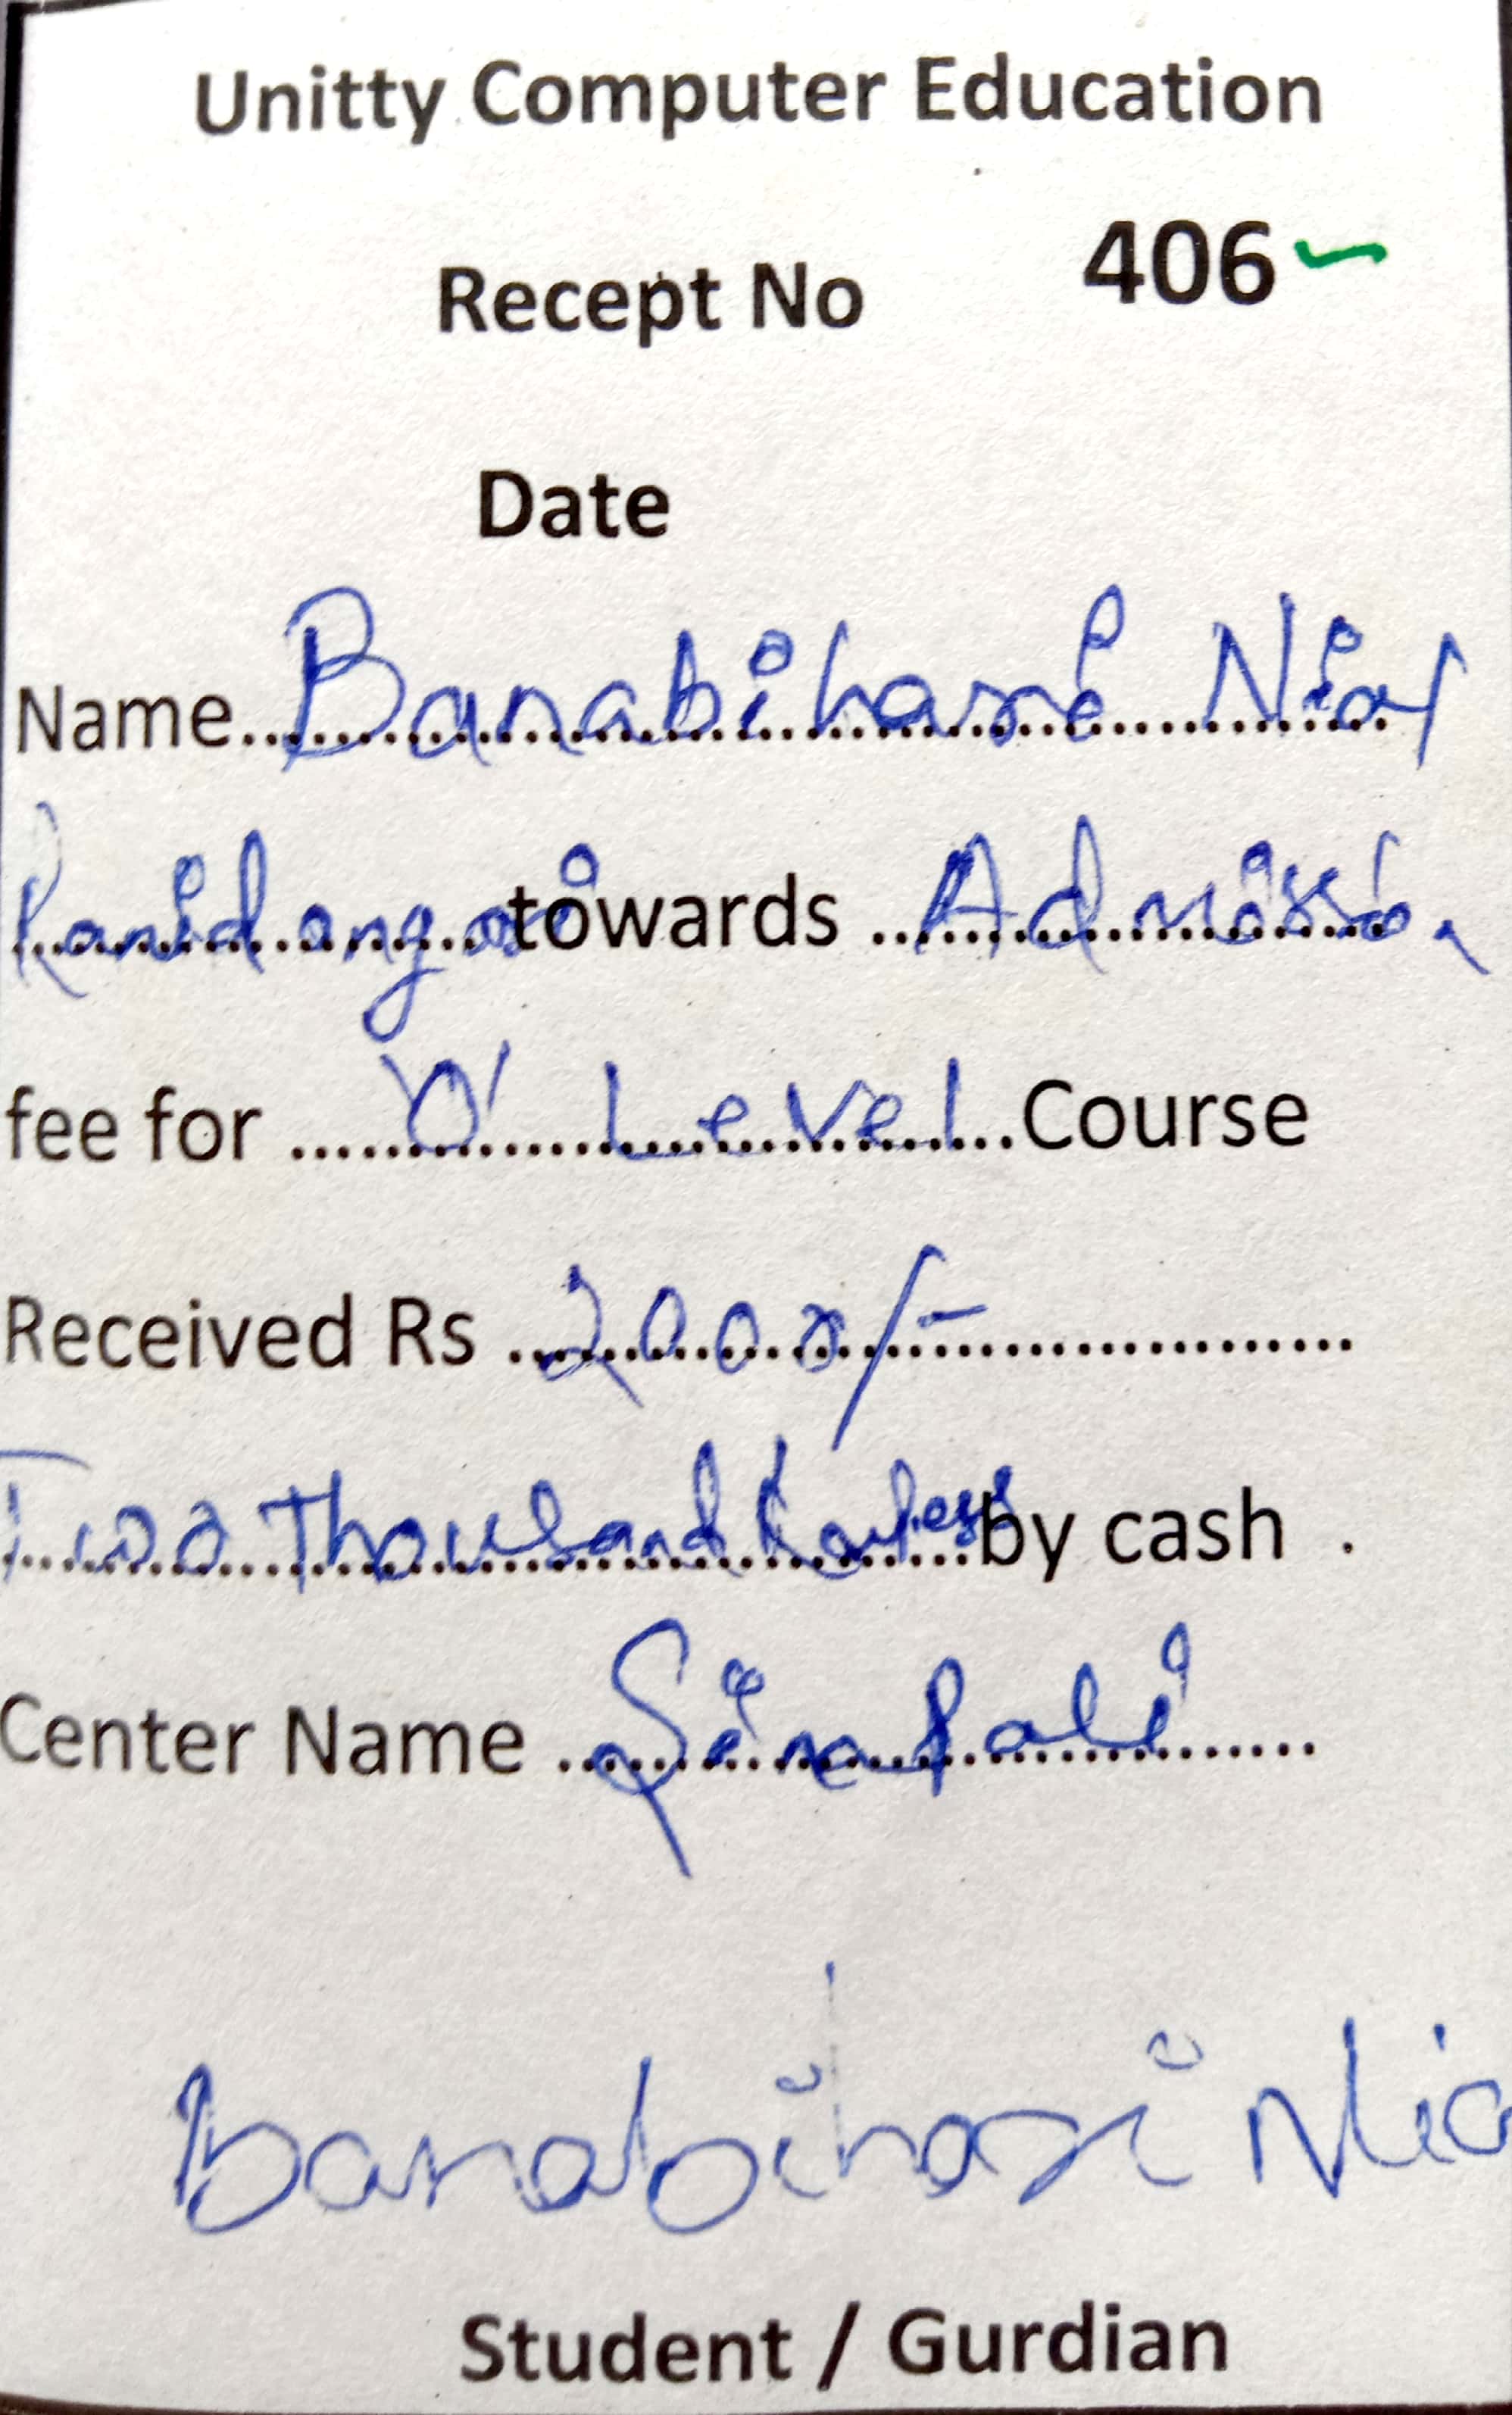 Unitty Computer Education
Recept No 406
Date
Name Banabihari Nial
towards Admission
fee for 'O' Level Course
Received Rs 2000/-
Two Thousand by cash .
Center Name Sinapali
Banabihari Nia
Student / Gurdian